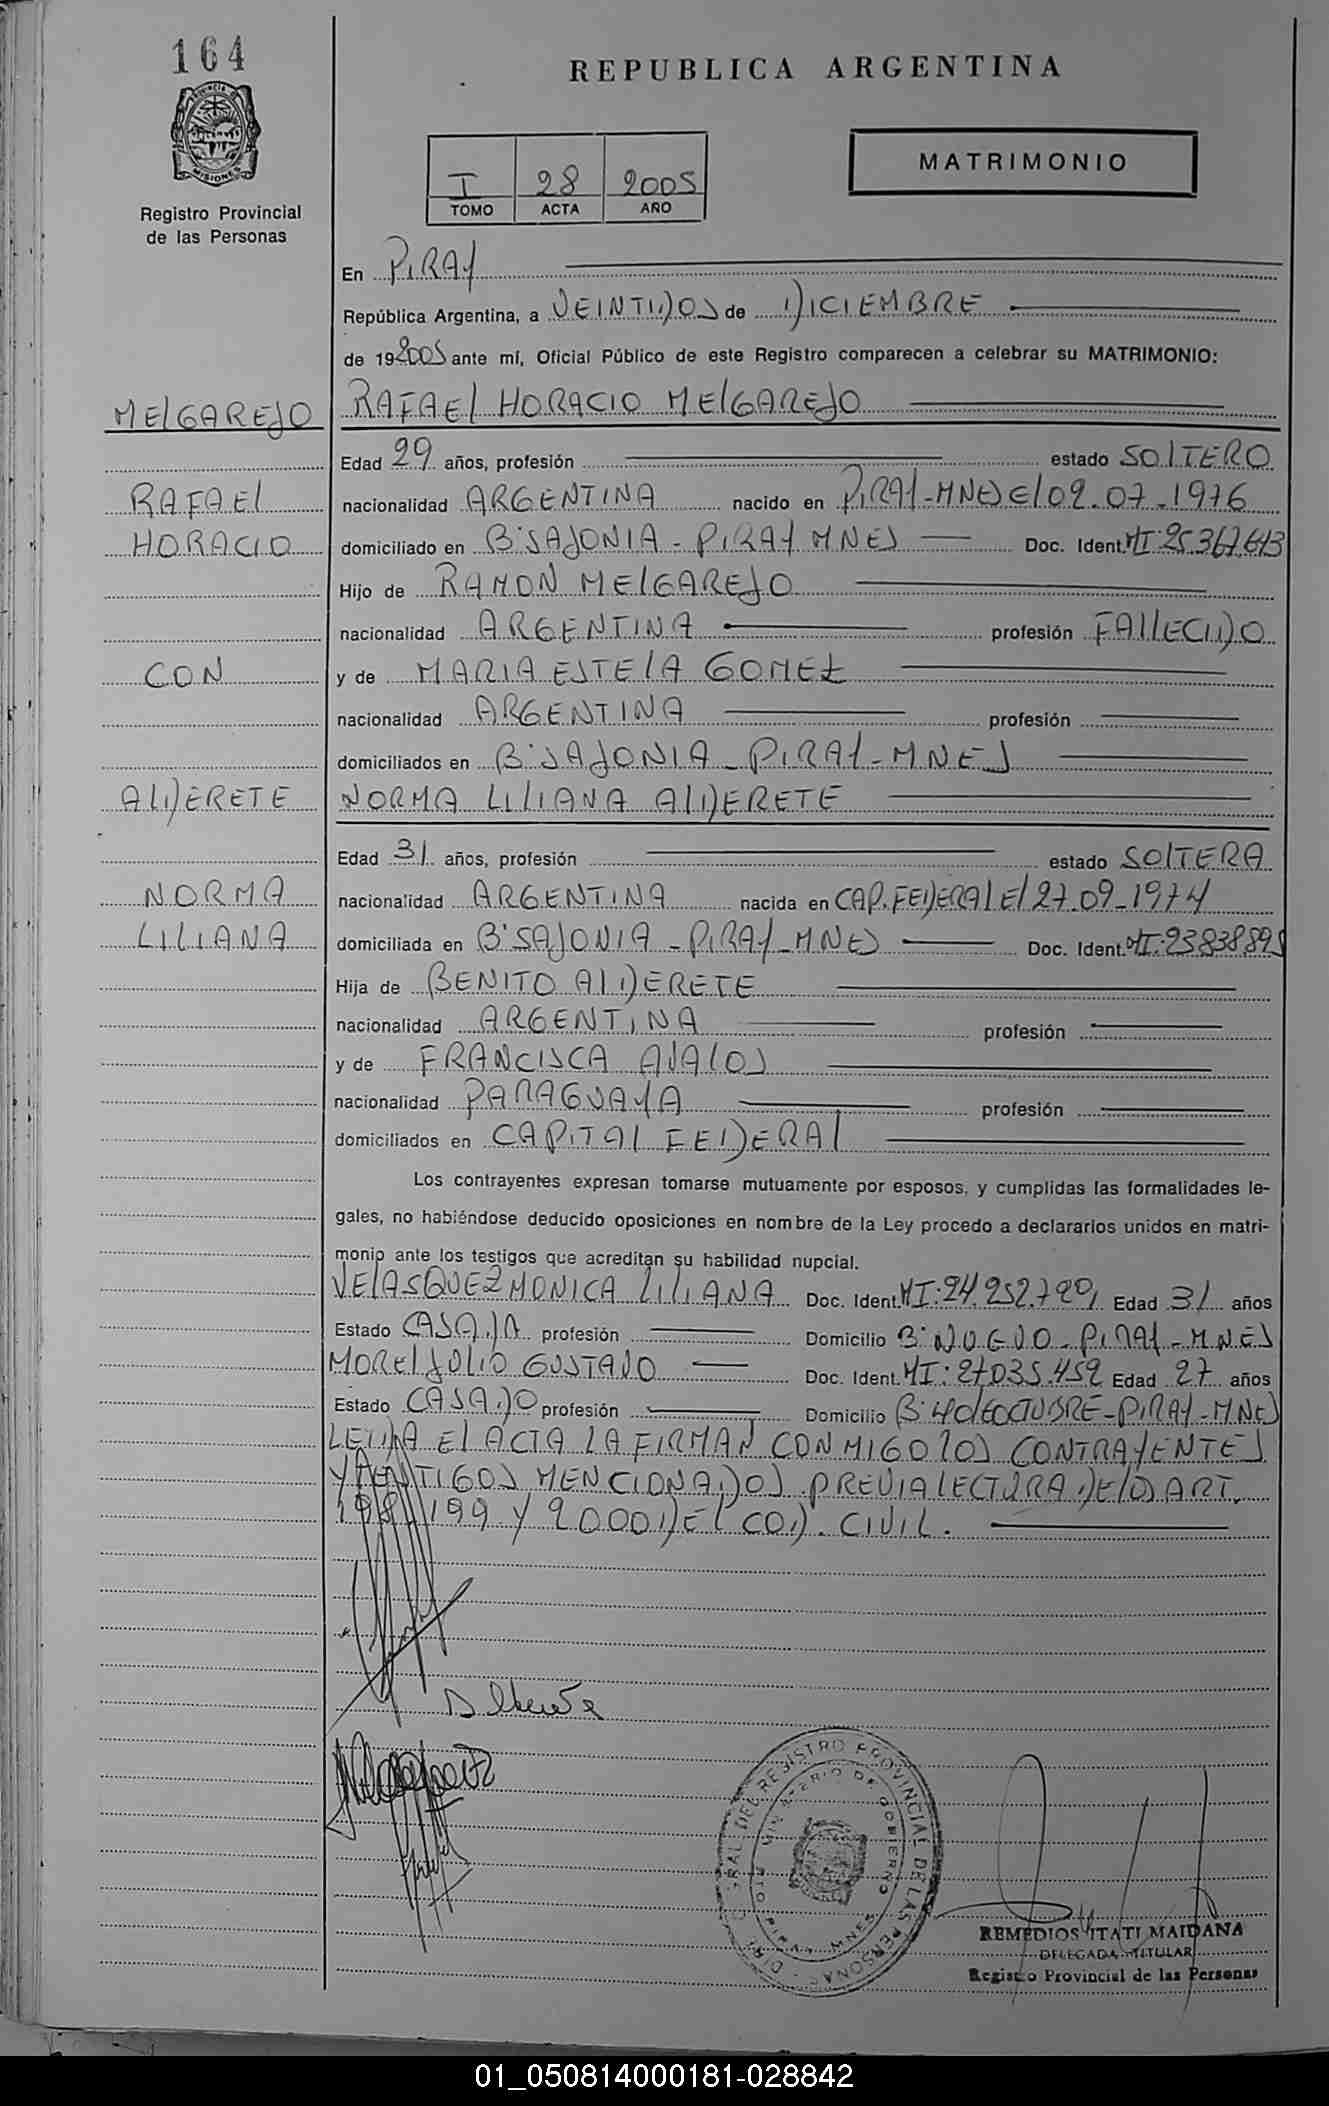 164
REPUBLICA ARGENTINA
MATRIMONIO
I 28 2005
TOMO ACTA AÑO
MISIONES
Registro Provincial
de las Personas
En PIRAY
República Argentina, a VEINTIDOS de DICIEMBRE
de 192005 ante mí, Oficial Público de este Registro comparecen a celebrar su MATRIMONIO:
MELGAREJO RAFAEL HORACIO MELGAREJO
Edad 29 años, profesión estado SOLTERO
RAFAEL nacionalidad ARGENTINA nacido en PIRAY-MNES El 02.07.1976
HORACIO domiciliado en B° SAJONIA - PIRAY MNES Doc. Ident. MI 25.367.613
Hijo de RAMON MELGAREJO
nacionalidad ARGENTINA profesión FALLECIDO
CON y de MARIA ESTELA GOMEZ
nacionalidad ARGENTINA profesión
domiciliados en B° SAJONIA - PIRAY - MNES
ALDERETE NORMA LILIANA ALDERETE
Edad 31 años, profesión estado SOLTERA
NORMA nacionalidad ARGENTINA nacida en CAP. FEDERAL El 27.09.1974
LILIANA domiciliada en B° SAJONIA - PIRAY - MNES Doc. Ident. MI: 23838895
Hija de BENITO ALDERETE
nacionalidad ARGENTINA profesión
y de FRANCISCA AVALOS
nacionalidad PARAGUAYA profesión
domiciliados en CAPITAL FEDERAL
Los contrayentes expresan tomarse mutuamente por esposos, y cumplidas las formalidades le-
gales, no habiéndose deducido oposiciones en nombre de la Ley procedo a declararlos unidos en matri-
monio ante los testigos que acreditan su habilidad nupcial.
VELASQUEZ MONICA LILIANA Doc. Ident. MI: 24.252.720, Edad 31 años
Estado CASADA profesión Domicilio B° NUEVO - PIRAY - MNES
MOREL JULIO GUSTAVO Doc. Ident. MI: 27035.452 Edad 27 años
Estado CASADO profesión Domicilio B° 4 DE OCTUBRE - PIRAY - MNES
LEIDA El ACTA LA FIRMAN CONMIGO LOS CONTRAYENTES
Y TESTIGOS MENCIONADOS PREVIA LECTURA DE LOS ART.
198, 199 Y 200 DEL COD. CIVIL.
DIR. GRAL. DEL REGISTRO PROVINCIAL DE LAS PERSONAS
MINISTERIO DE GOBIERNO
PIRAY MNES
REMEDIOS ITATI MAIDANA
DELEGADA TITULAR
Registro Provincial de las Personas
01_050814000181-028842